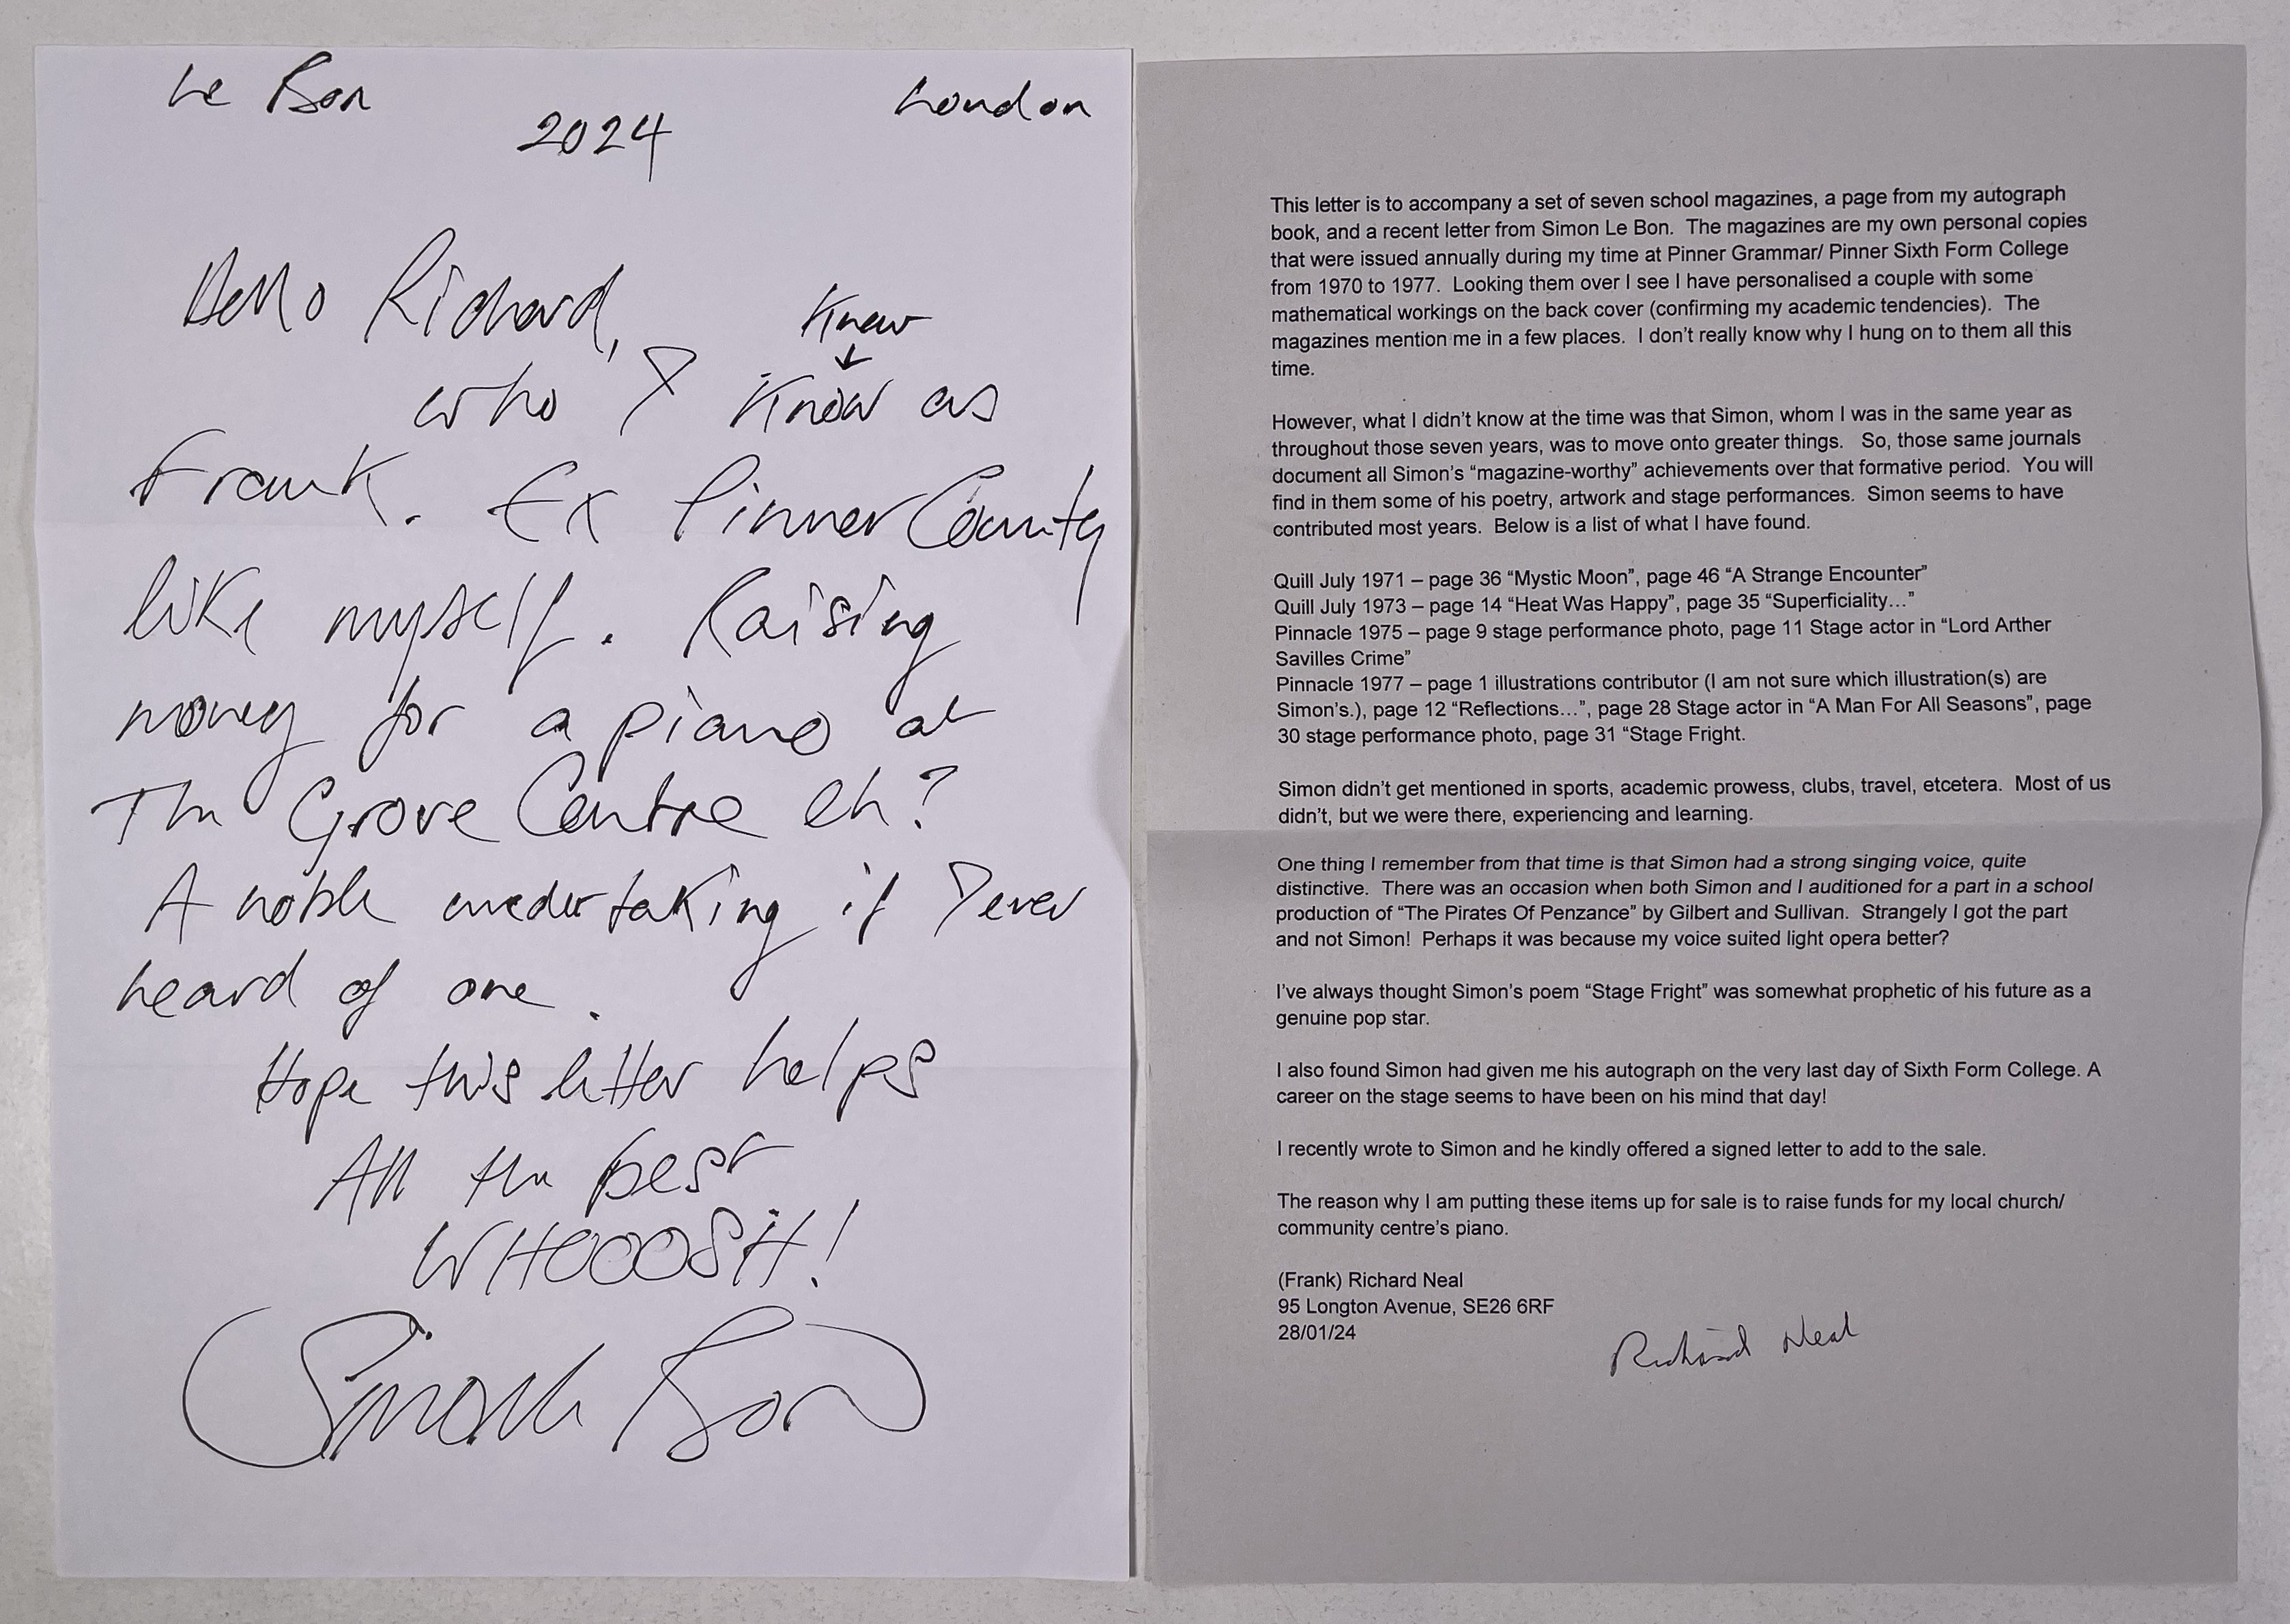 Le Bon London
2024
Hello Richard,
Knew
↓
who I Know as
Frank. Ex Pinner County
like myself. Raising
money for a piano at
The Grove Centre eh?
A noble undertaking if I ever
heard of one.
Hope this letter helps
All the best
WHOOOSH!
Simon Le Bon
This letter is to accompany a set of seven school magazines, a page from my autograph
book, and a recent letter from Simon Le Bon. The magazines are my own personal copies
that were issued annually during my time at Pinner Grammar/ Pinner Sixth Form College
from 1970 to 1977. Looking them over I see I have personalised a couple with some
mathematical workings on the back cover (confirming my academic tendencies). The
magazines mention me in a few places. I don't really know why I hung on to them all this
time.
However, what I didn't know at the time was that Simon, whom I was in the same year as
throughout those seven years, was to move onto greater things. So, those same journals
document all Simon's “magazine-worthy” achievements over that formative period. You will
find in them some of his poetry, artwork and stage performances. Simon seems to have
contributed most years. Below is a list of what I have found.
Quill July 1971 – page 36 “Mystic Moon”, page 46 “A Strange Encounter”
Quill July 1973 – page 14 “Heat Was Happy”, page 35 “Superficiality…”
Pinnacle 1975 – page 9 stage performance photo, page 11 Stage actor in “Lord Arther
Savilles Crime”
Pinnacle 1977 – page 1 illustrations contributor (I am not sure which illustration(s) are
Simon's.), page 12 “Reflections…”, page 28 Stage actor in “A Man For All Seasons”, page
30 stage performance photo, page 31 “Stage Fright.
Simon didn't get mentioned in sports, academic prowess, clubs, travel, etcetera. Most of us
didn't, but we were there, experiencing and learning.
One thing I remember from that time is that Simon had a strong singing voice, quite
distinctive. There was an occasion when both Simon and I auditioned for a part in a school
production of “The Pirates Of Penzance” by Gilbert and Sullivan. Strangely I got the part
and not Simon! Perhaps it was because my voice suited light opera better?
I've always thought Simon's poem “Stage Fright” was somewhat prophetic of his future as a
genuine pop star.
I also found Simon had given me his autograph on the very last day of Sixth Form College. A
career on the stage seems to have been on his mind that day!
I recently wrote to Simon and he kindly offered a signed letter to add to the sale.
The reason why I am putting these items up for sale is to raise funds for my local church/
community centre's piano.
(Frank) Richard Neal
95 Longton Avenue, SE26 6RF
28/01/24
Richard Neal